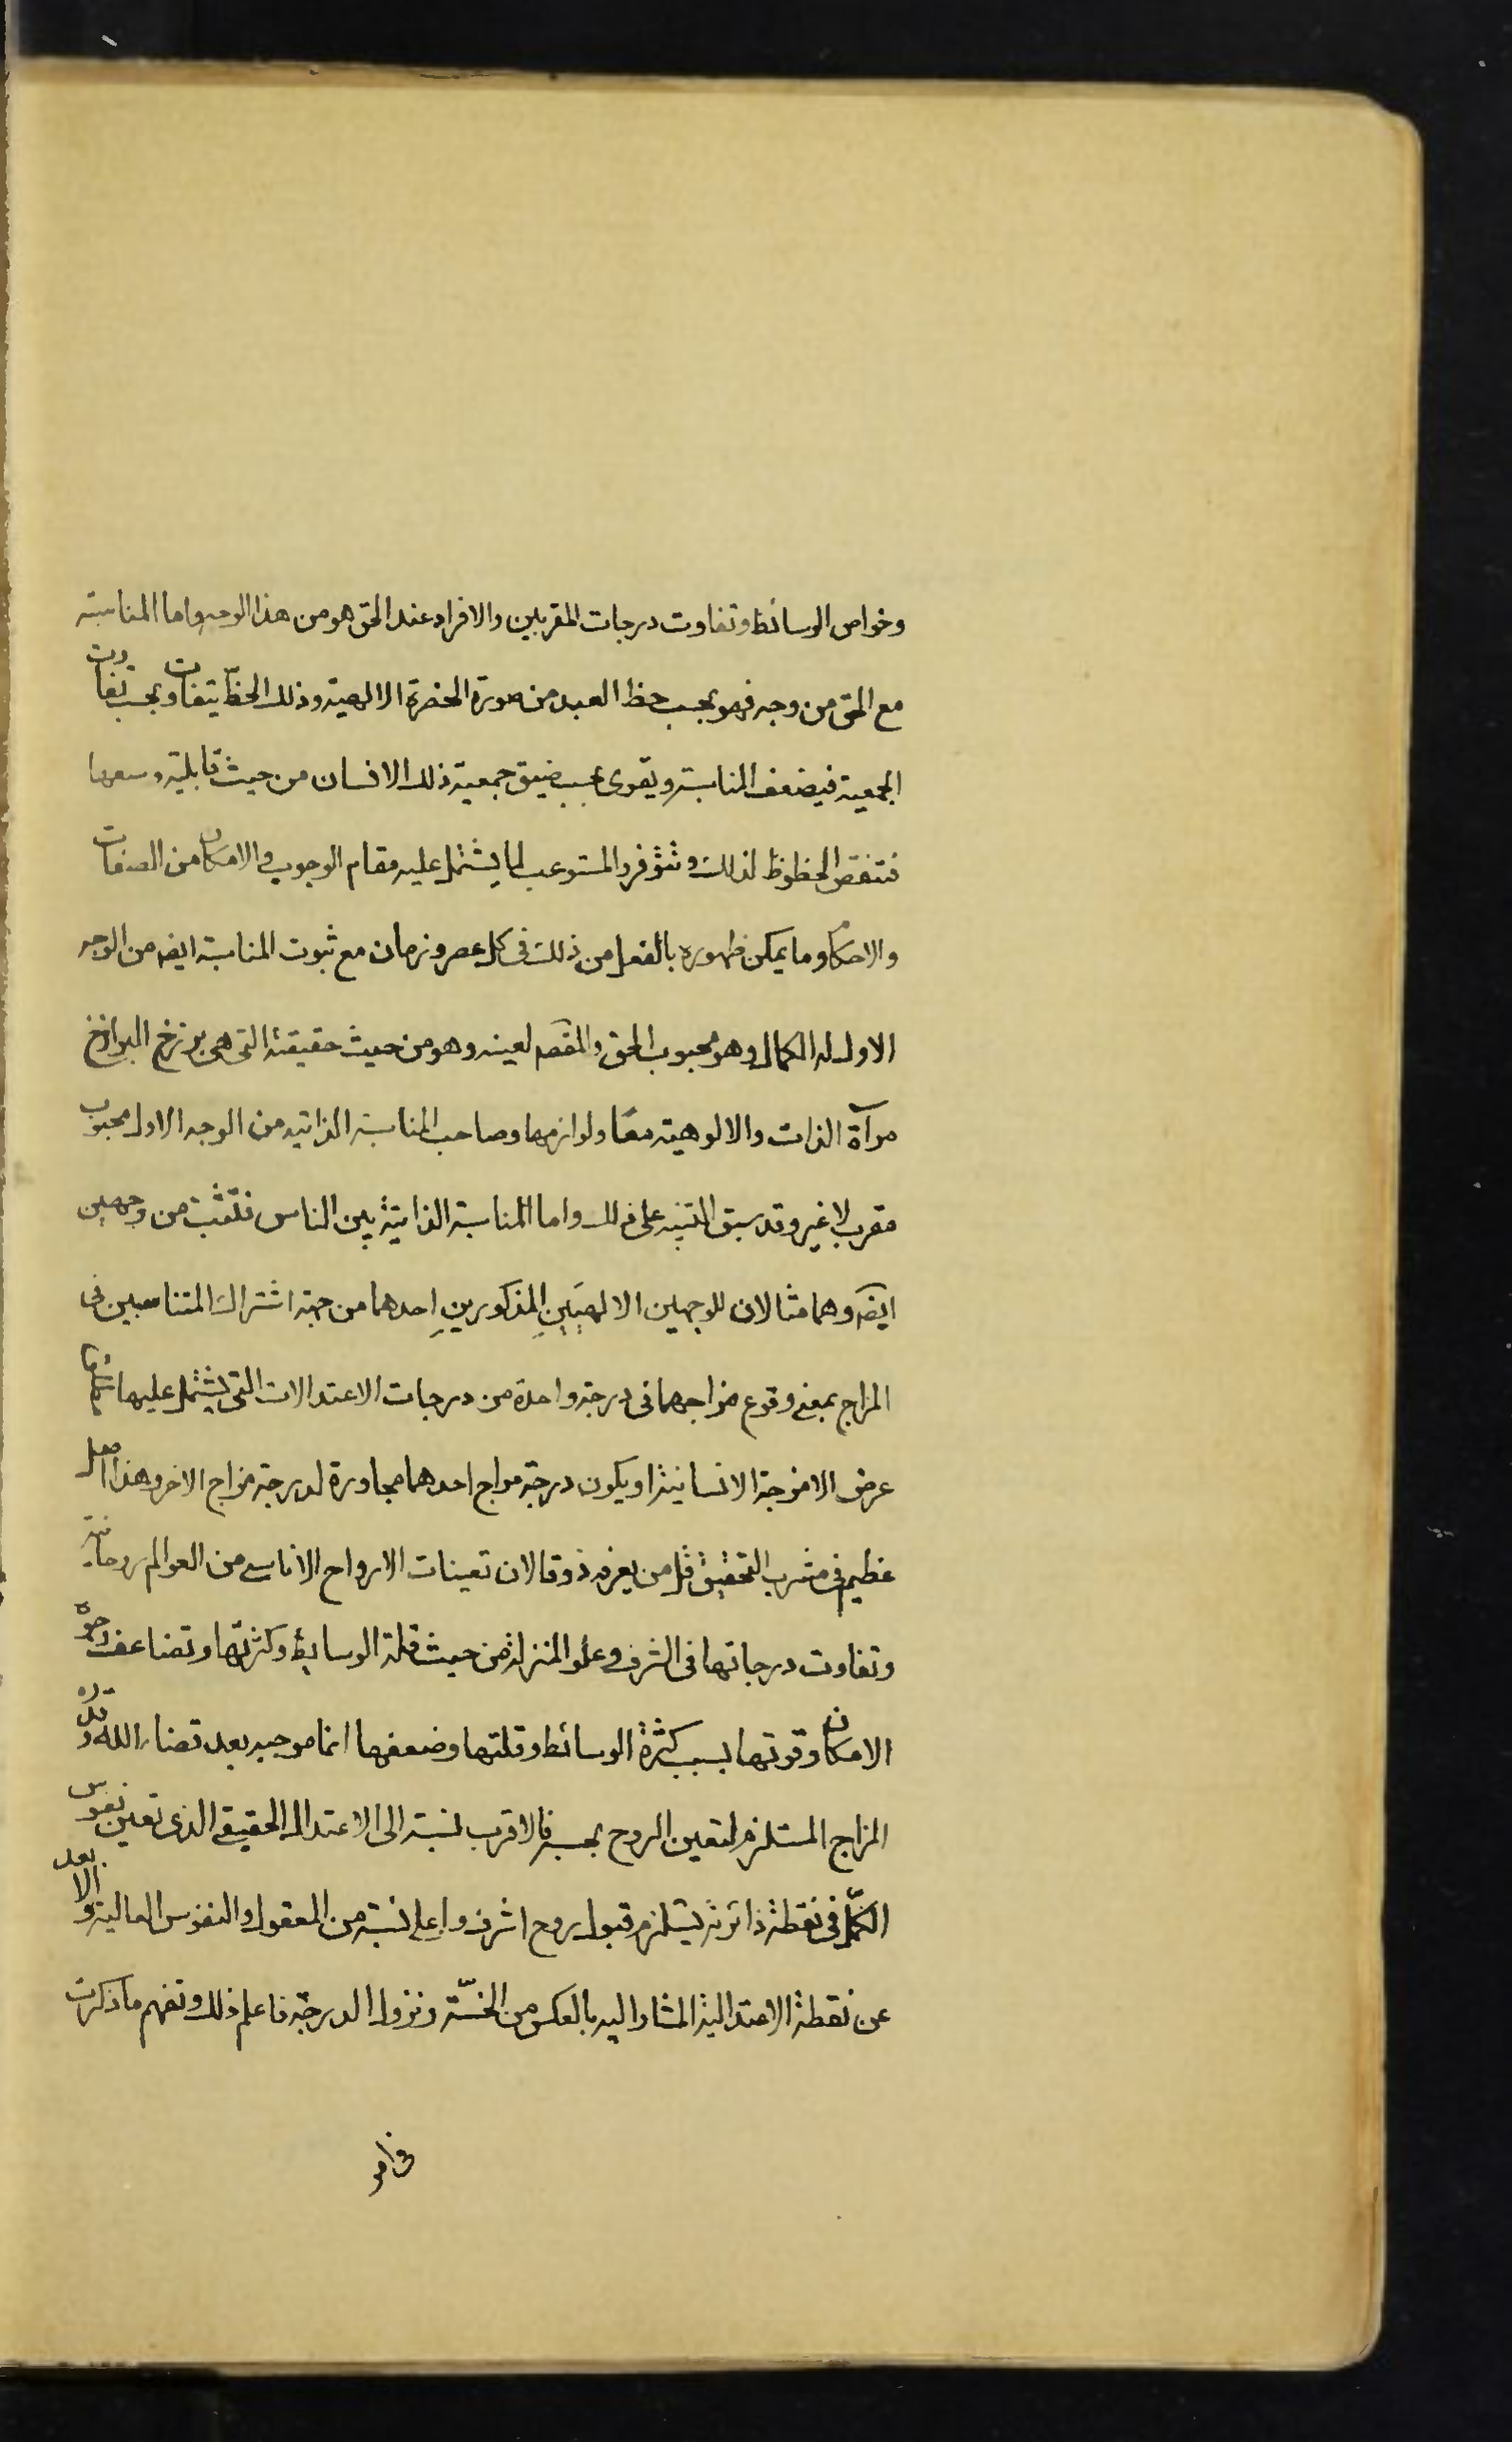 وخواص الوسائط وتفاوت درجات المقربين والافراد عند الحق هو من هذا الوجه واما المناسبة
مع الحق من وجه فهو بحسب حظ العبد من صورة الحضرة الالهية وذلك الحظ يتفاوت بحسب تفاوت
الجمعية فيضعف المناسبة ويقوى بحسب ضيق جمعية ذلك الانسان من حيث قابليته وسعها
فتنقص الحظوظ لذلك وتتوفر والمستوعب لما يشتمل عليه مقام الوجوب والامكان من الصفات
والاحكام وما يمكن ظهوره بالفعل من ذلك فى كل عصر وزمان مع ثبوت المناسبة ايضه من الوجه
الاول له الكمال وهو محبوب الحق والمقصم لعينه وهو من حيث حقيقته التى هى برزخ البرازخ
مرآة الذات والالوهية معًا ولوازمها وصاحب المناسبة الذاتيه من الوجه الاول محبوب
مقرب لا غير وقد سبق التنبيه على ذلك واما المناسبة الذاتية بين الناس فتثبت من وجهين
ايضه وهما مثالان للوجهين الالهيين المذكورين احدهما من جهة اشتراك المتناسبين فى
المزاج بمعنى وقوع مزاجهما فى درجة واحدة من درجات الاعتدالات التى يشتمل عليها
عرض الامزجة الانسانية او يكون درجة مزاج احدهما مجاورة لدرجة مزاج الاخر وهذا اصل
عظيم فى مشرب التحقيق قل من يعرفه ذوقا لان تعينات الارواح الاناسى من العوالم روحانية
وتفاوت درجاتها فى الشرف وعلو المنزلة من حيث قلة الوسايط وكثرتها وتضاعف وجوه
الامكان وقوتها بسبب كثرة الوسائط وقلتها وضعفها انما موجبه بعد قضاء الله وقدره
المزاج المستلزم لتعين الروح بحسبه فالاقرب نسبة الى الاعتدال الحقيقى الذى تعين نفوس
الكمّل فى نقطة دائرته يستلزم قبول روح اشرف واعلى نسبة من العقول والنفوس العالية والابعد
عن نقطة الاعتدالية المشار اليه بالعكس من الخسّة ونزول الدرجة فاعلم ذلك وتفهم ما ذكرت